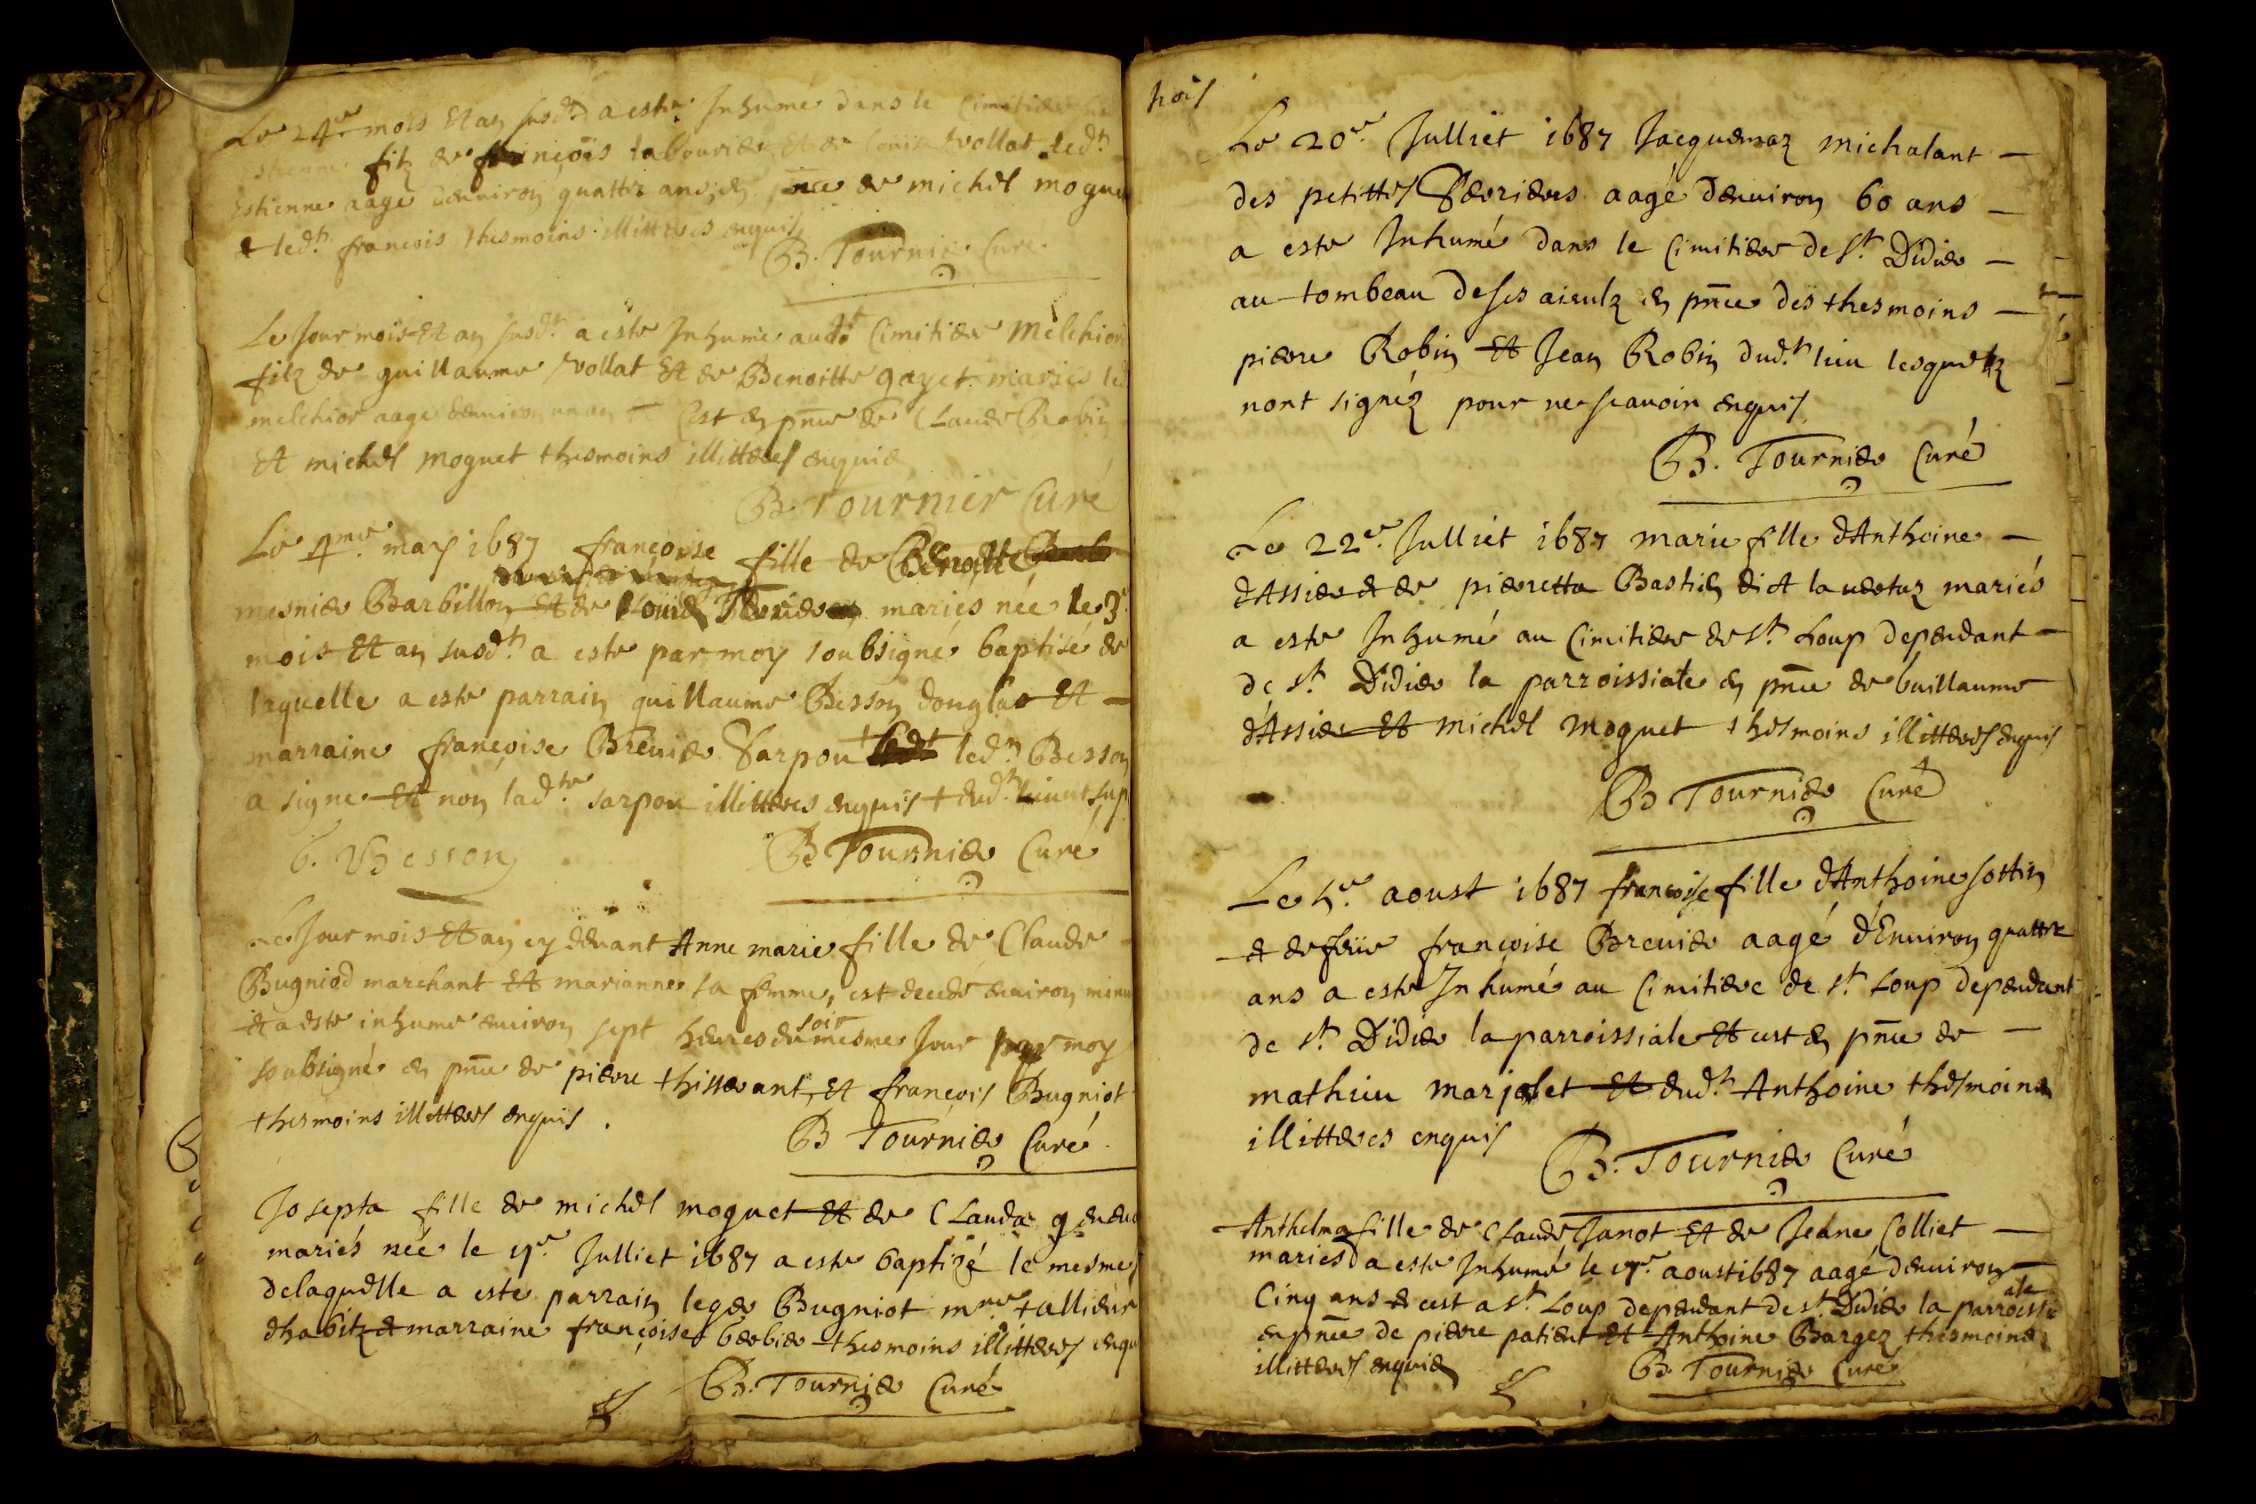 Le 24e mois Et an susdt a este Inhumé dans le Cimitiere
filz de françois labourier Et de Vollat ledt
Estienne aagé denviron quattre ans, en pnce de michel moguet
& ledt francois thesmoins illitteres enquis
B. Tournier Curé
Le Jour mois Et an susdt a este Inhumé audt Cimitiere Melchior
filz de guillaume Vollat Et de Benoitte gayet mariés led
melchior aage denviron un an Cest en pnce de Claude Robin
Et michel moguet thesmoins illitteres enquis
B. Tournier Curé
Le 4me may 1687 françoise fille de Benoitte
mesnier Barbillon Et de mariés née le 3e
mois Et an susdt a este par moy soubsigné baptisé de
laquelle a este parrain guillaume Besson Et
marraine françoise Brevier Sarpou + ledt Besson
a signe Et non ladte sarpou illitteres enquis + dudt
G. Besson B Tournier Curé
Le Jour mois Et an cy devant Anne marie fille de Claude
Bugniod marchant Et marianne sa femme, est decede environ
et a este inhume environ sept heures du soir mesme Jour par moy
soubsigné en pnce de pierre thisserant, Et françois Bugniot
thesmoins illitteres enquis .
B Tournier Curé
Josepta fille de michel moguet Et de Clauda
mariés née le 17e Julliet 1687 a este baptizé le mesme
delaquelle a este parrain leger Bugniot mre tallieur
dhabitz & marraine françoise berbier thesmoins illitteres enqu
B. Tournier Curé
Le 20e Julliet 1687 Jacquemaz michalant
des petittes Verrieres aagé denviron 60 ans
a este Inhumé dans le Cimitiere de St Didier
au tombeau de ses aieulz en pnce des thesmoins
pierre Robin Et Jean Robin dudt lieu lesquelz
nont signéz pour ne scavoir enquis
B. Tournier Curé
Le 22e Julliet 1687 marie fille dAnthoine
dAssier & de pierretta Bastien dict mariés
a este Inhumé au Cimitiere de St Loup dependant
de St Didier la parroissiale en pnce de Guillaume
dAssier Et michel moguet thesmoins illitteres enquis
B Tournier Curé
Le 5e aoust 1687 françoise fille dAnthoine sottin
& de feüe françoise Brevier aagé dEnviron quattre
ans a este Inhumé au Cimitiere de St Loup dependant
de St Didier la parroissiale Et cest en pnce de
mathieu marjolet Et dudt Anthoine thesmoins
illitteres enquis
B. Tournier Curé
Anthelma fille de Claude Janot Et de Jeane Colliet
mariés a este Inhumé le 17e aoust 1687 aagé denviron
Cinq ans & cest a St Loup dependant de st Didier la parroissiale
en pnce de pierre patient Et Anthoine Bargez thesmoins
illitteres enquis
B. Tournier Curé